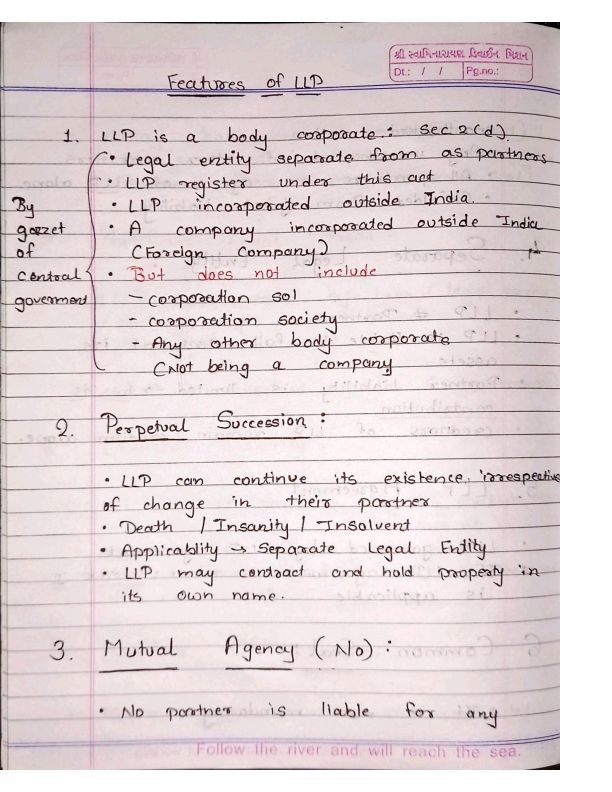 શ્રી સ્વામિનારાયણ ડિવાઈન મિશન
Dt.: / / Pg.no.:
Features of LLP
1. LLP is a body corporate : Sec 2(d)
• Legal entity separate from as partners
• LLP register under this act
• LLP incorporated outside India.
• A company incorporated outside India
(Foreign Company)
• But does not include
- corporation sol
- corporation society
- Any other body corporate
(Not being a company
By
gazzet
of
central
goverment
2. Perpetual Succession :
• LLP can continue its existence irrespective
of change in their partner
• Death / Insanity / Insolvent
• Applicablity → Separate Legal Entity
• LLP may contract and hold property in
its own name.
3. Mutual Agency (No) :
• No partner is liable for any
Follow the river and will reach the sea.